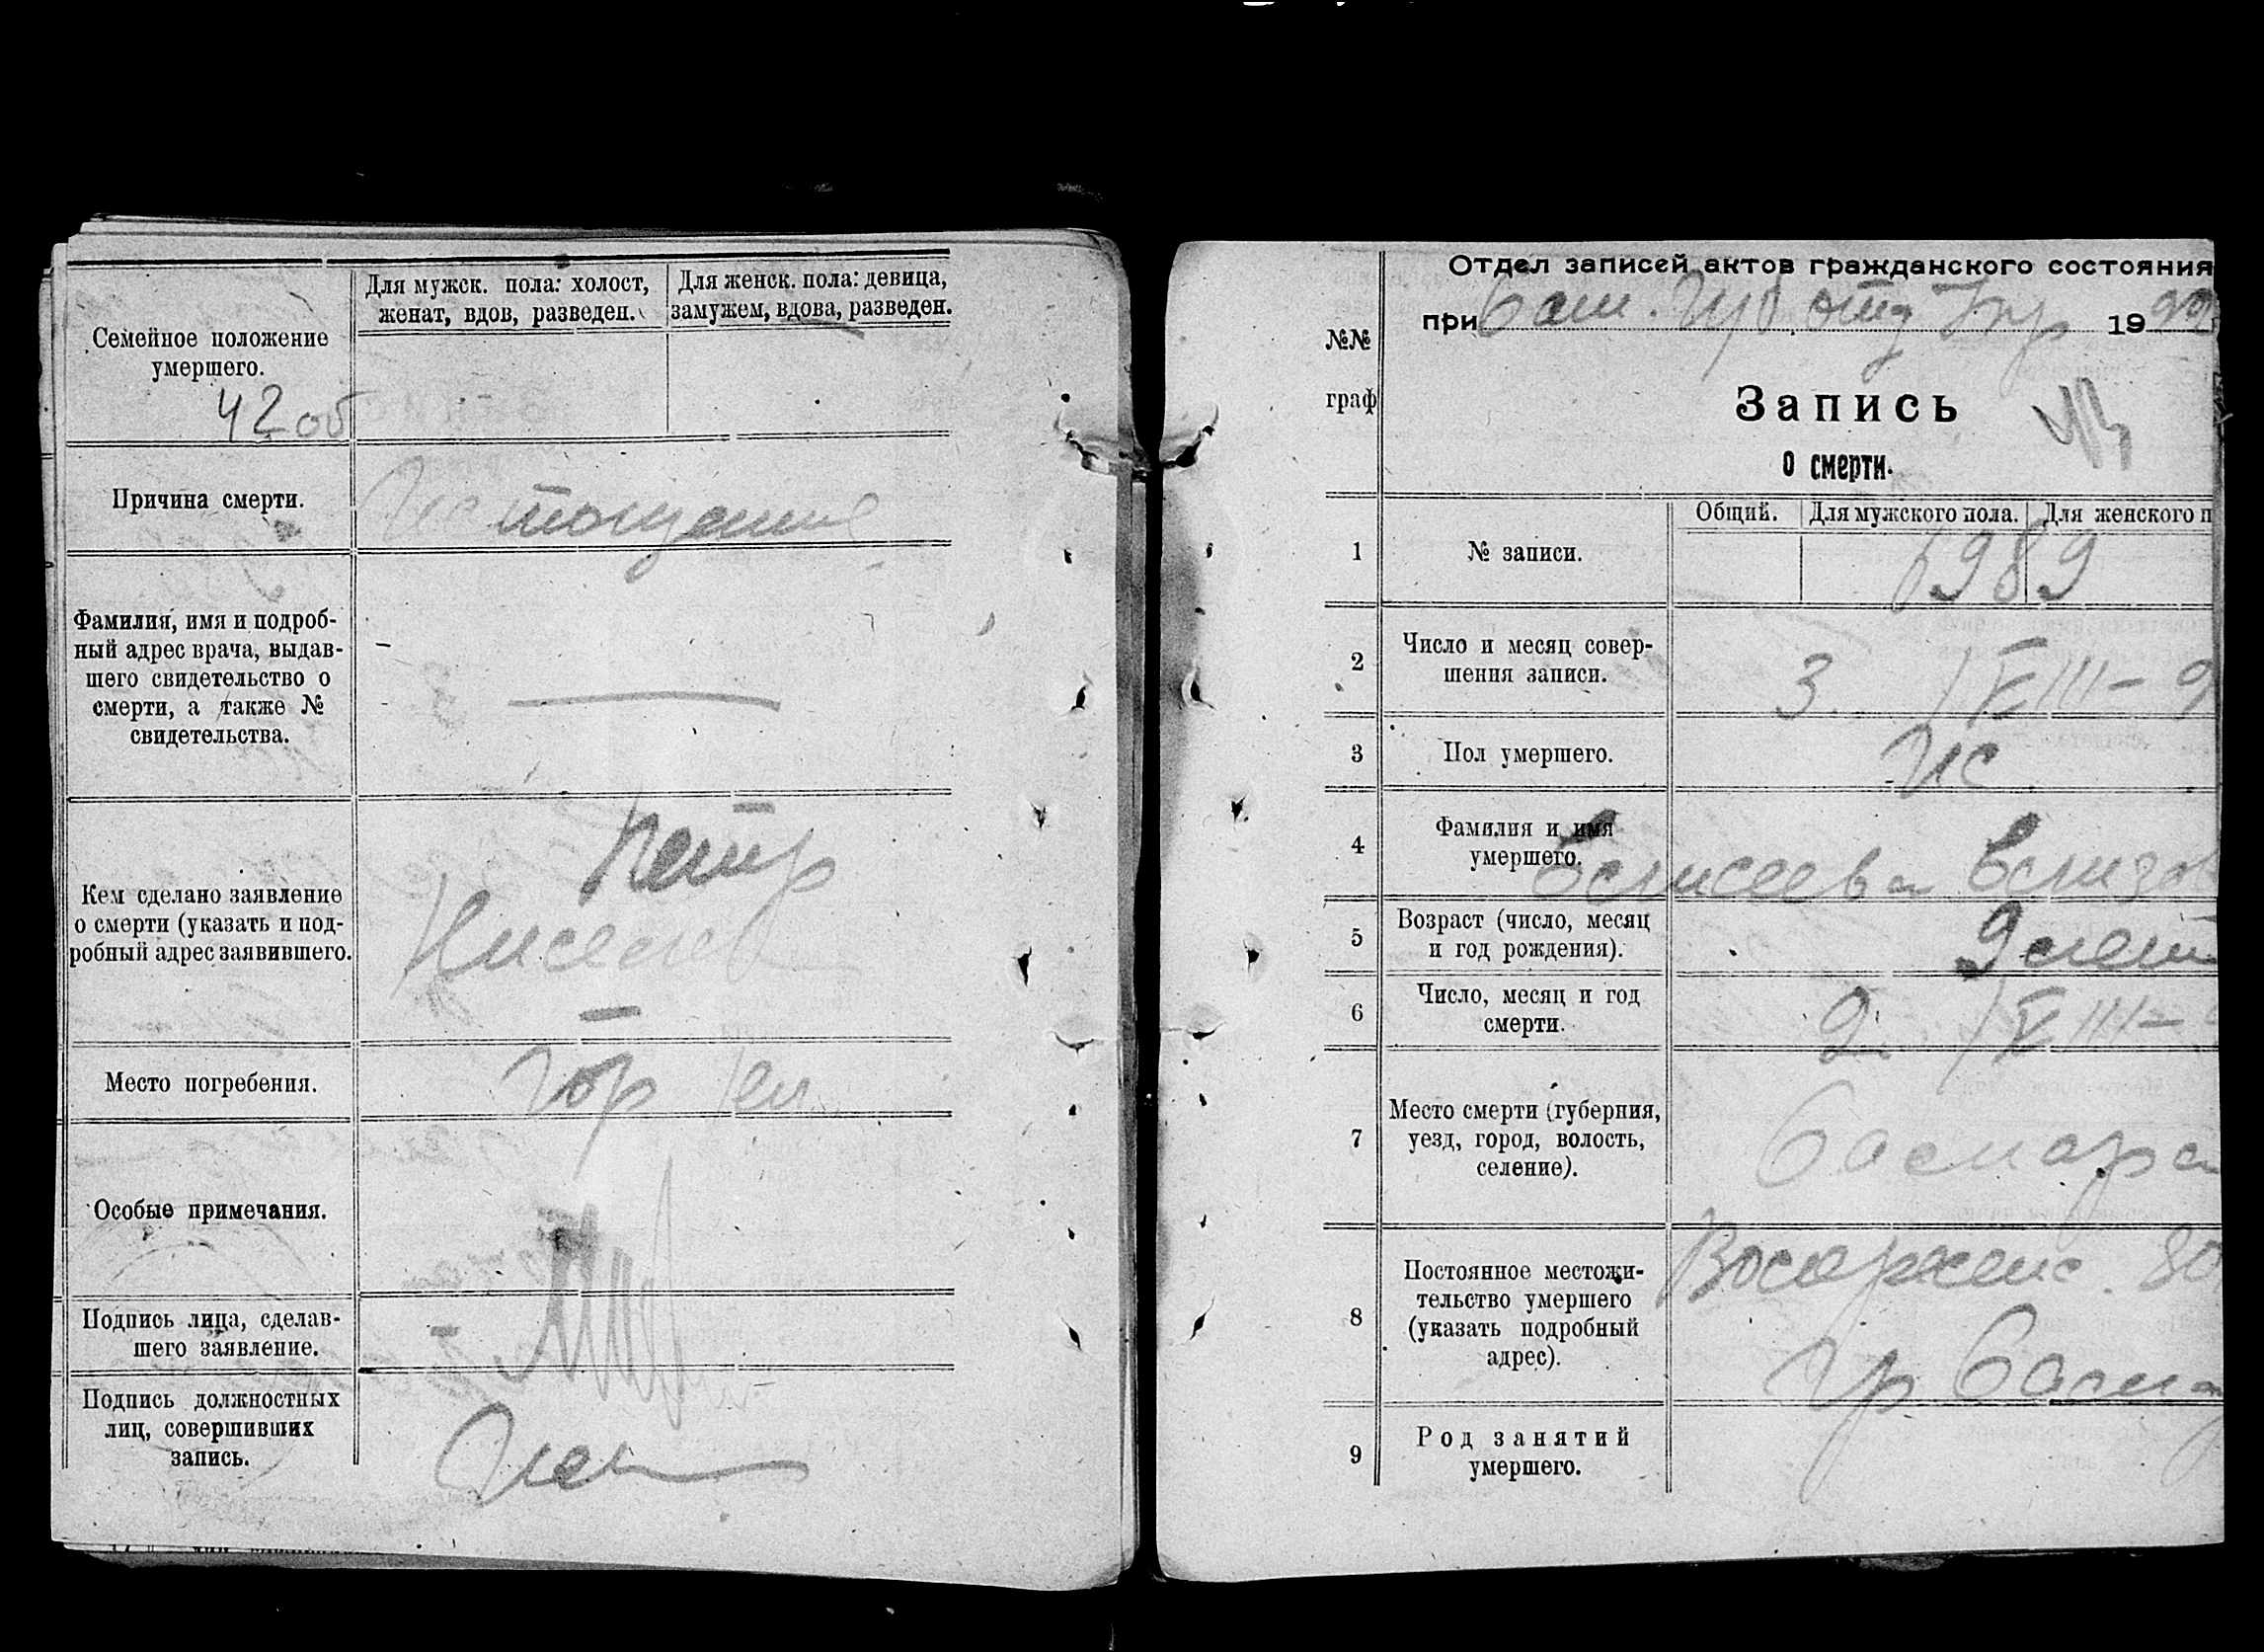 Семейное положение
умершего.
42 об
Для мужск. пола: холост,
женат, вдов, разведен.
Для женск. пола: девица,
замужем, вдова, разведен.
Причина смерти.
Истощение
Фамилия, имя и подроб-
ный адрес врача, выдав-
шего свидетельство о
смерти, а также №
свидетельства.
Кем сделано заявление
о смерти (указать и под-
робный адрес заявившего.
Петр
Киселев
Место погребения.
гор
Особые примечания.
Подпись лица, сделав-
шего заявление.
Подпись должностных
лиц, совершивших
запись.
Отдел записей актов гражданского состояния
при Сам. Губ отд 19 22
№№
граф
43
Запись
о смерти.
1
№ записи.
Общий.
Для мужского пола.
Для женского п
6989
2
Число и месяц совер-
шения записи.
3. / VIII – 2
3
Пол умершего.
4
Фамилия и имя
умершего.
Елисеева Елизав
5
Возраст (число, месяц
и год рождения).
9 лет
6
Число, месяц и год
смерти.
2. / VIII –
7
Место смерти (губерния,
уезд, город, волость,
селение).
Самара
8
Постоянное местожи-
тельство умершего
(указать подробный
адрес).
гр Сама
9
Род занятий
умершего.